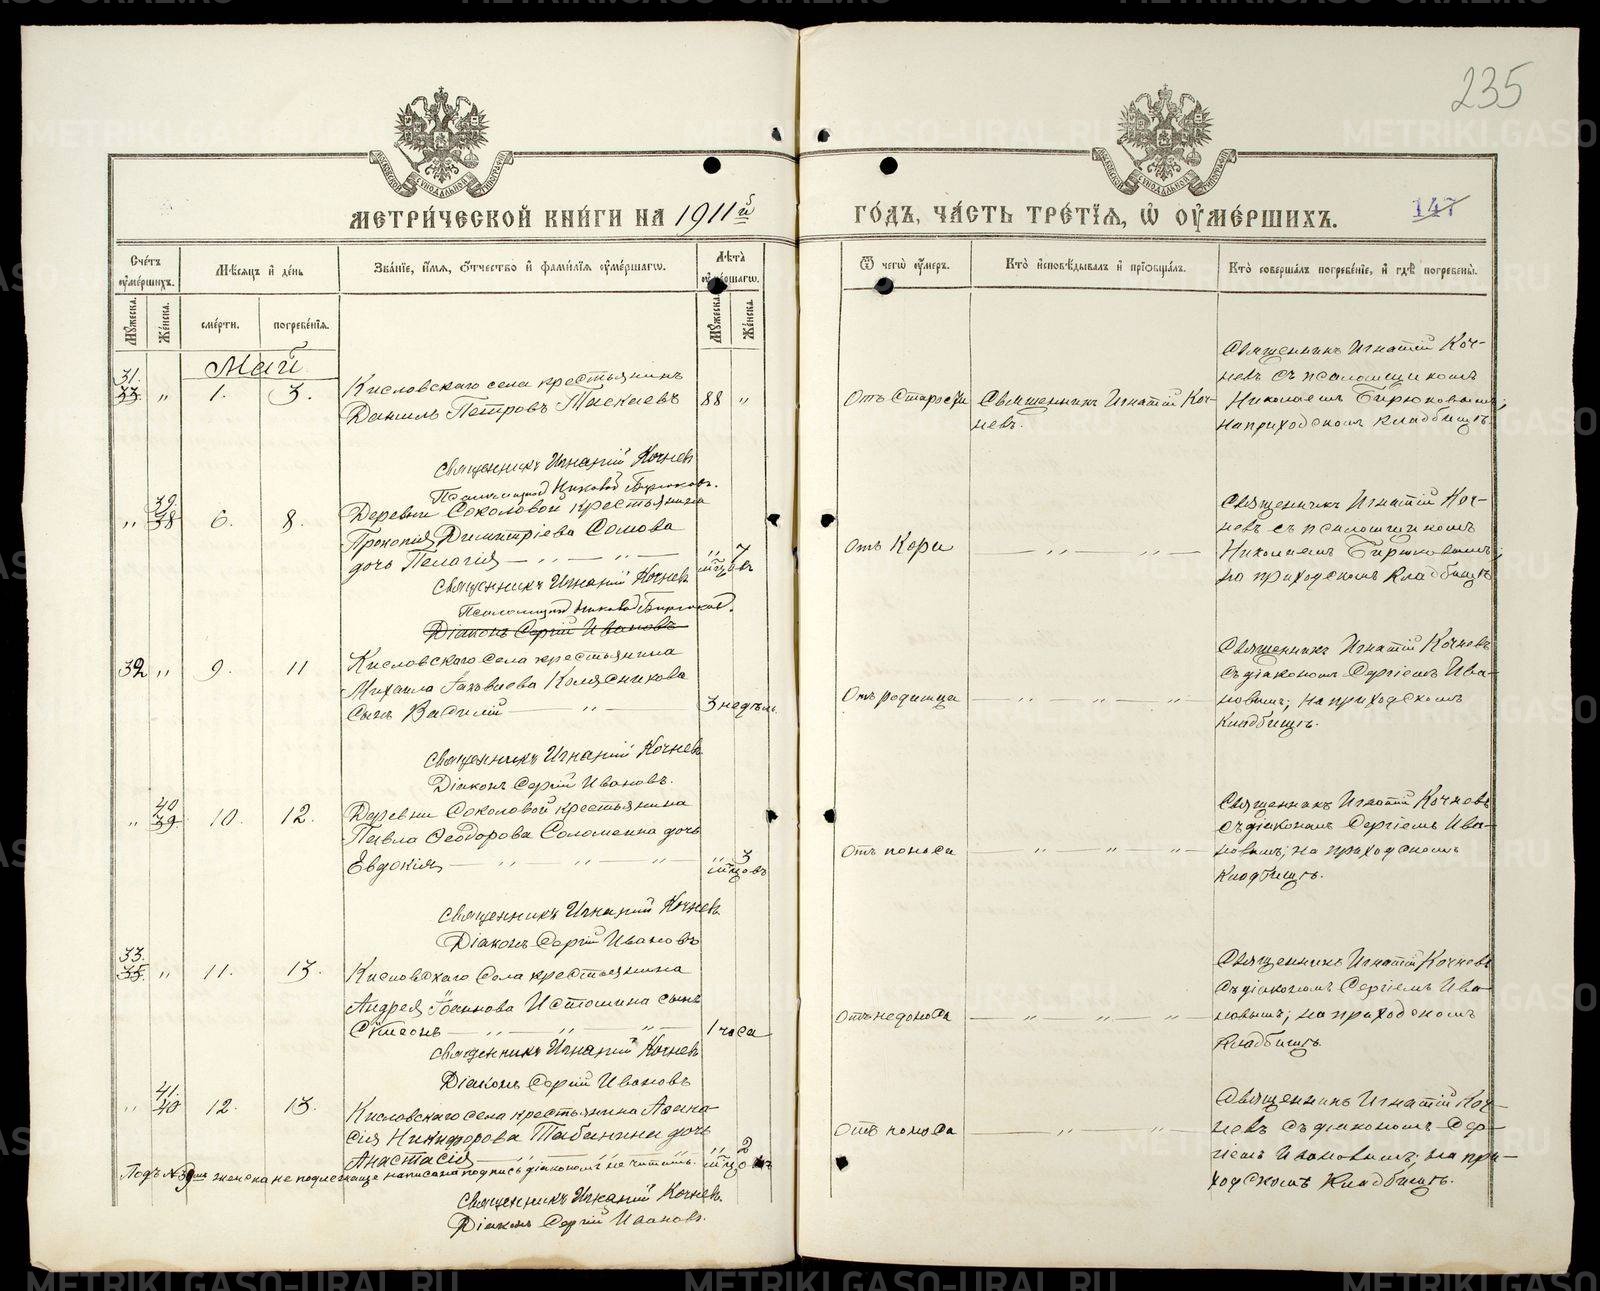 235
МЕТРИ́ЧЕСКОЙ КНИ́ГИ НА 1911й
ГО́ДЪ, ЧА́СТЬ ТРЕ́ТЇѦ, Ѡ҆ ОУ҆МЕ́РШИХЪ.
147
Сче́тъ оумершихъ.
Мѣсѧцъ и҆ де́нь
Зва́нїе, и҆́мѧ, ѻ҆́тчество и҆ фами́лїѧ оу҆ме́ршагѡ.
Лѣта̀ оу҆ме́ршагѡ.
Ѿ чегѡ̀ оу҆́меръ.
Кто̀ и҆сповѣ́дывалъ и҆ прїѡбща́лъ.
Кто̀ соверша́лъ погребе́нїе, и҆ гдѣ̀ погребены̀.
Мꙋ́жеска.
Же́нска.
сме́рти.
погребе́нїѧ.
Мꙋ́жеска.
Же́нска.
Май
31.
33. " 1. 3.
Кисловскаго села крестьянинъ
Данiилъ Петровъ Таскаевъ 88 "
Отъ Старости
Священникъ Игнатiй Коч-
невъ.
Священникъ Игнатiй Коч-
невъ съ псаломщикомъ
Николаемъ Бирюковымъ;
на приходскомъ кладбищѣ.
Священникъ Игнатiй Кочневъ
Псаломщикъ Николай Бирюковъ.
39
" 38 6. 8.
Деревни Соколовой крестьянина
Прокопия Димитрiева Сомова
дочь Пелагiя — " — " —
" 7 мѣсяц.
Отъ Кори
— " — " —
Священникъ Игнатiй Коч-
невъ съ псаломщикомъ
Николаемъ Бирюковымъ;
на приходскомъ кладбищѣ
Священникъ Игнатiй Кочневъ
Псаломщикъ Николай Бирюковъ.
Дiаконъ Сергiй Ивановъ
32 " 9. 11
Кисловскаго села крестьянина
Михаила Iаковлева Колясникова
сынъ Василiй — " —
3 недѣли.
Отъ родимца
— " — " — " —
Священникъ Игнатiй Кочневъ
съ дiакономъ Сергiемъ Ива-
новымъ; на приходскомъ
кладбищѣ.
Священникъ Игнатiй Кочневъ
Дiаконъ Сергiй Ивановъ.
40
" 39. 10. 12.
Деревни Соколовой крестьянина
Павла Ѳеодорова Соломеина дочь
Евдокiя — " " "
" 3 мѣсяцовъ
Отъ поноса
— " — " — " —
Священникъ Игнатiй Кочневъ
съ дiакономъ Сергiемъ Ива-
новымъ; на приходскомъ
кладбищѣ.
Священникъ Игнатiй Кочневъ
Дiаконъ Сергiй Ивановъ
33.
35. " 11. 13.
Кисловскаго села крестьянина
Андрея Iоаннова Истомина сынъ
Сѵмеонъ — " — " — " —
1 часа
Отъ недоноса
— " — " — " —
Священникъ Игнатiй Кочневъ
съ дiакономъ Сергiемъ Ива-
новымъ; на приходскомъ
кладбищѣ
Священникъ Игнатiй Кочневъ
Дiаконъ Сергiй Ивановъ
41.
" 40 12. 13.
Кисловскаго села крестьянина Аѳана-
сiя Никифорова Табанина дочь
Анастасiя
" 2 мѣсяц.
Отъ поноса
— " — " —
Священникъ Игнатiй Коч-
невъ съ дiакономъ Сер-
гiемъ Ивановымъ; на при-
ходскомъ кладбищѣ.
Подъ № 39мъ женска не подлежаще написана подпись дiакономъ не читать.
Священникъ Игнатiй Кочневъ.
Дiаконъ Сергiй Ивановъ.
METRIKI.GASO-URAL.RU